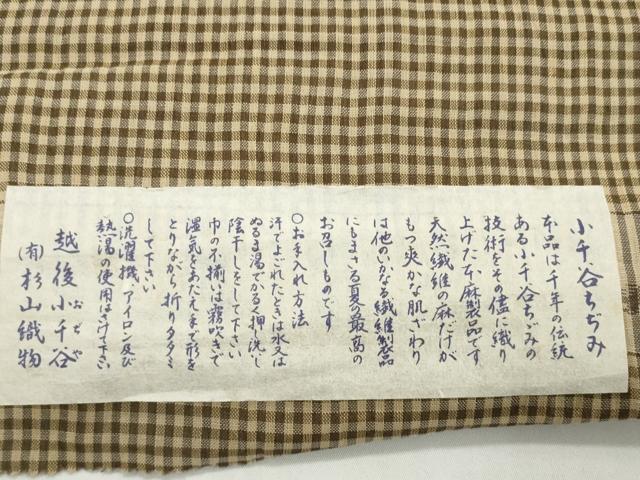 小千谷ちぢみ
本品は千年の伝統
ある小千谷ちゞみの
技術をその儘に織り
上げた本麻製品です
天然繊維の麻だけが
もつ爽かな肌ざわり
は他のいかなる繊維製品
にもまさる夏の最高の
お召しものです
○お手入れ方法
汗でよごれたときは水又は
ぬるま湯でかるく押洗いし
陰干しをして下さい
巾の不揃いは霧吹きで
湿気をあたえ手で形を
とりながら折りタタミ
して下さい
○洗濯機、アイロン及び
熱湯の使用はさけて下さい
越後小千谷
おぢや
(有)杉山織物